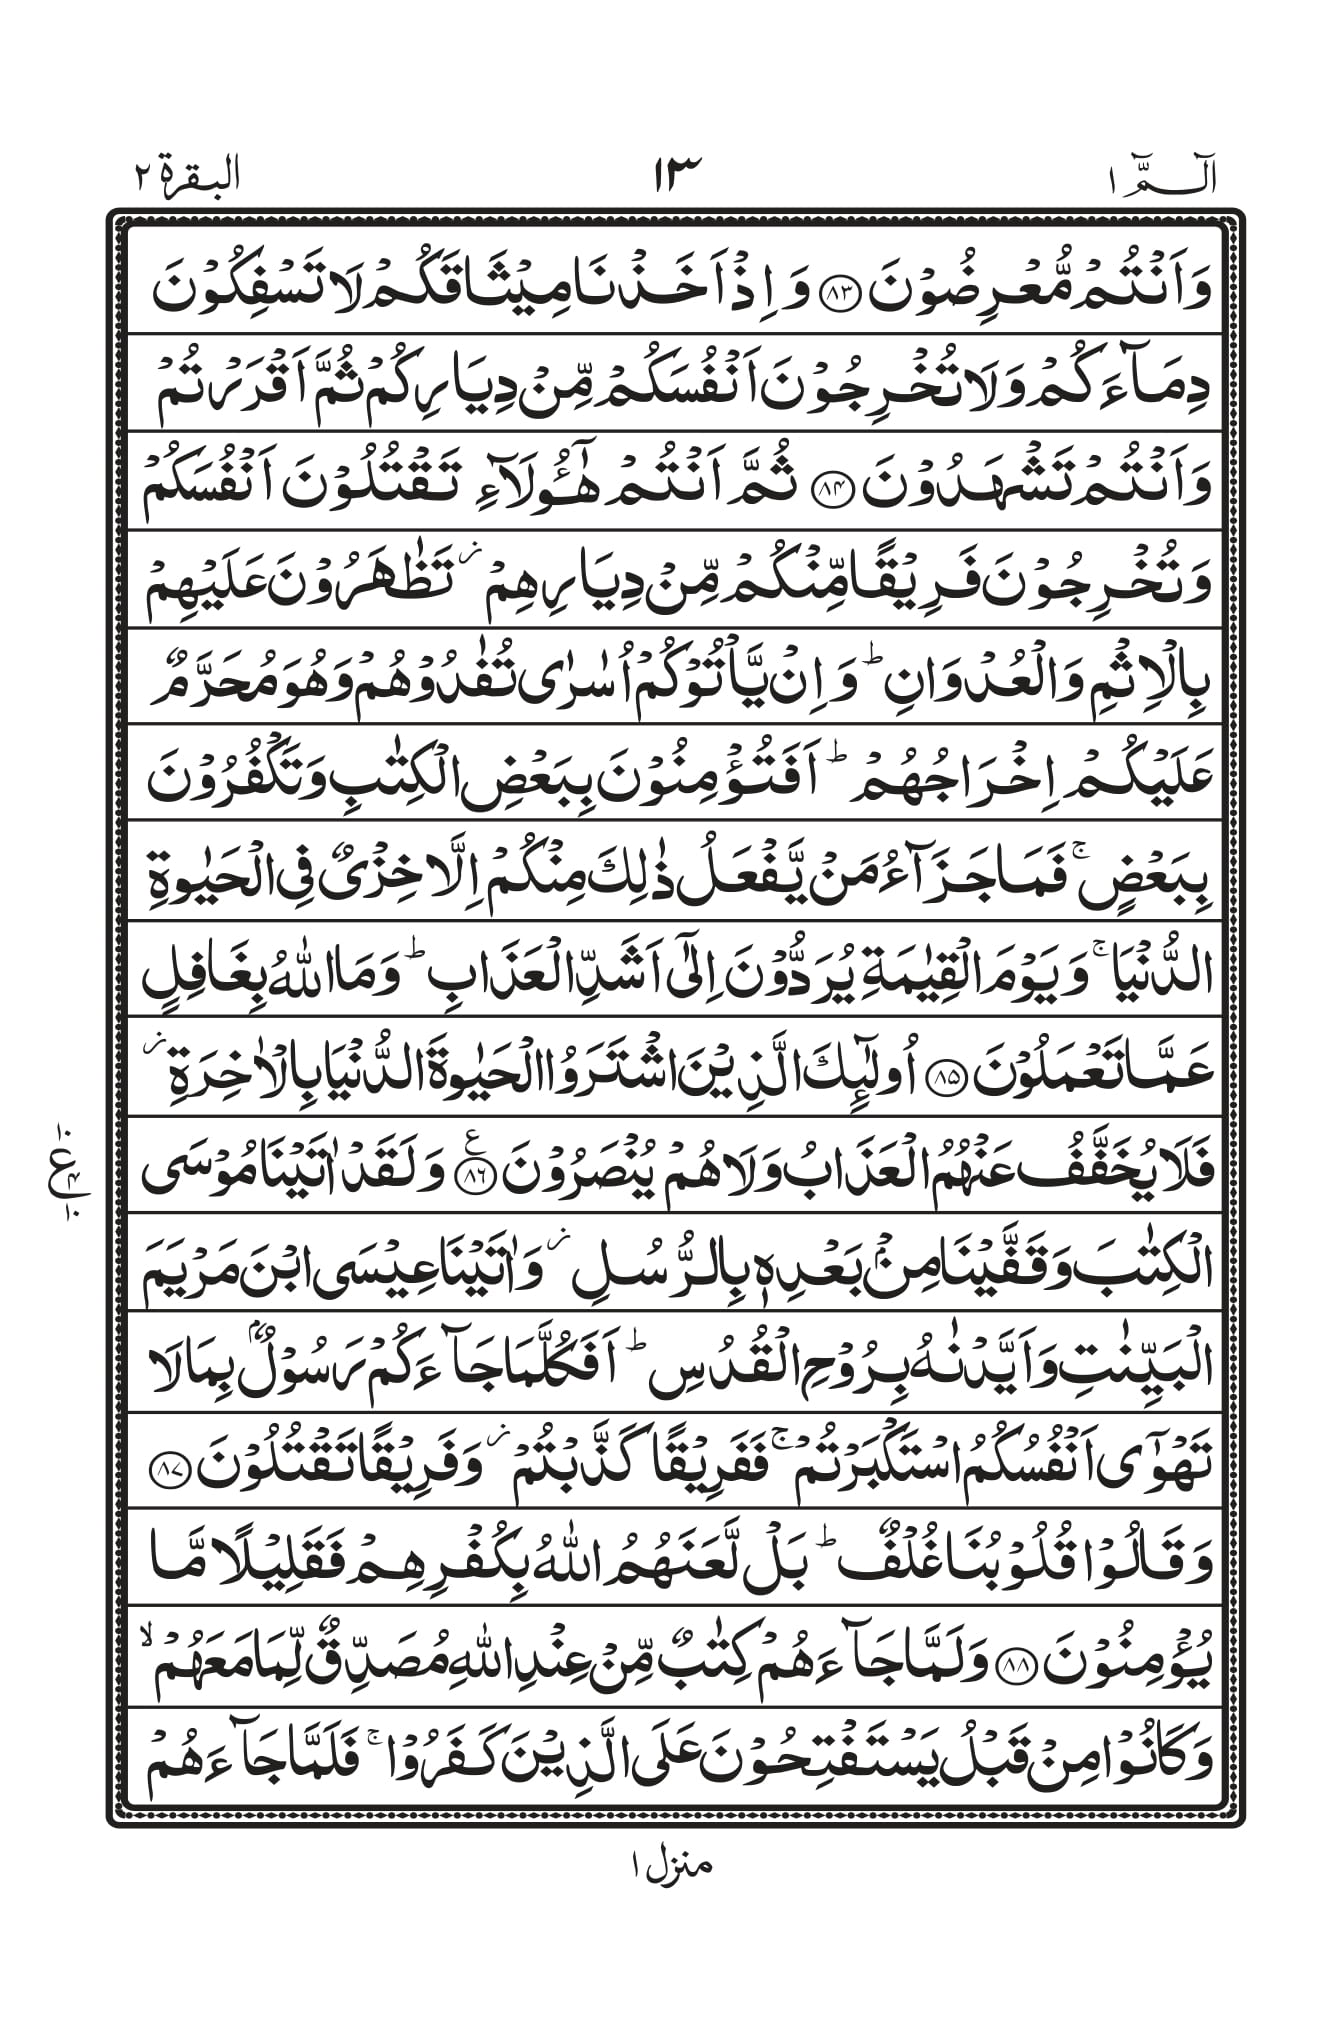 الٓـمّٓ ١
١٣
البقرة ٢
وَاَنْتُمْ مُّعْرِضُوْنَ ﴿٨٣﴾ وَ اِذْ اَخَذْنَا مِيْثَاقَكُمْ لَا تَسْفِكُوْنَ
دِمَآءَكُمْ وَلَا تُخْرِجُوْنَ اَنْفُسَكُمْ مِّنْ دِيَارِكُمْ ثُمَّ اَقْرَرْتُمْ
وَاَنْتُمْ تَشْهَدُوْنَ ﴿٨٤﴾ ثُمَّ اَنْتُمْ هٰٓؤُلَآءِ تَقْتُلُوْنَ اَنْفُسَكُمْ
وَتُخْرِجُوْنَ فَرِيْقًا مِّنْكُمْ مِّنْ دِيَارِهِمْ ز تَظٰهَرُوْنَ عَلَيْهِمْ
بِالْاِثْمِ وَالْعُدْوَانِ ؕ وَ اِنْ يَّاْتُوْكُمْ اُسٰرٰى تُفٰدُوْهُمْ وَهُوَ مُحَرَّمٌ
عَلَيْكُمْ اِخْرَاجُهُمْ ؕ اَفَتُؤْمِنُوْنَ بِبَعْضِ الْكِتٰبِ وَتَكْفُرُوْنَ
بِبَعْضٍ ۚ فَمَا جَزَآءُ مَنْ يَّفْعَلُ ذٰلِكَ مِنْكُمْ اِلَّا خِزْىٌ فِى الْحَيٰوةِ
الدُّنْيَا ۚ وَيَوْمَ الْقِيٰمَةِ يُرَدُّوْنَ اِلٰٓى اَشَدِّ الْعَذَابِ ؕ وَمَا اللّٰهُ بِغَافِلٍ
عَمَّا تَعْمَلُوْنَ ﴿٨٥﴾ اُولٰٓئِكَ الَّذِيْنَ اشْتَرَوُا الْحَيٰوةَ الدُّنْيَا بِالْاٰخِرَةِ ز
فَلَا يُخَفَّفُ عَنْهُمُ الْعَذَابُ وَلَا هُمْ يُنْصَرُوْنَ ﴿٨٦﴾ ع وَلَقَدْ اٰتَيْنَا مُوْسَى
١٠ ع ٤ ١٠
الْكِتٰبَ وَقَفَّيْنَا مِنْۢ بَعْدِهٖ بِالرُّسُلِ ز وَاٰتَيْنَا عِيْسَى ابْنَ مَرْيَمَ
الْبَيِّنٰتِ وَاَيَّدْنٰهُ بِرُوْحِ الْقُدُسِ ؕ اَفَكُلَّمَا جَآءَكُمْ رَسُوْلٌۢ بِمَا لَا
تَهْوٰٓى اَنْفُسُكُمُ اسْتَكْبَرْتُمْ ۚ فَفَرِيْقًا كَذَّبْتُمْ ز وَفَرِيْقًا تَقْتُلُوْنَ ﴿٨٧﴾
وَقَالُوْا قُلُوْبُنَا غُلْفٌ ؕ بَلْ لَّعَنَهُمُ اللّٰهُ بِكُفْرِهِمْ فَقَلِيْلًا مَّا
يُؤْمِنُوْنَ ﴿٨٨﴾ وَلَمَّا جَآءَهُمْ كِتٰبٌ مِّنْ عِنْدِ اللّٰهِ مُصَدِّقٌ لِّمَا مَعَهُمْ ۙ
وَكَانُوْا مِنْ قَبْلُ يَسْتَفْتِحُوْنَ عَلَى الَّذِيْنَ كَفَرُوْا ۚ فَلَمَّا جَآءَهُمْ
منزل ١